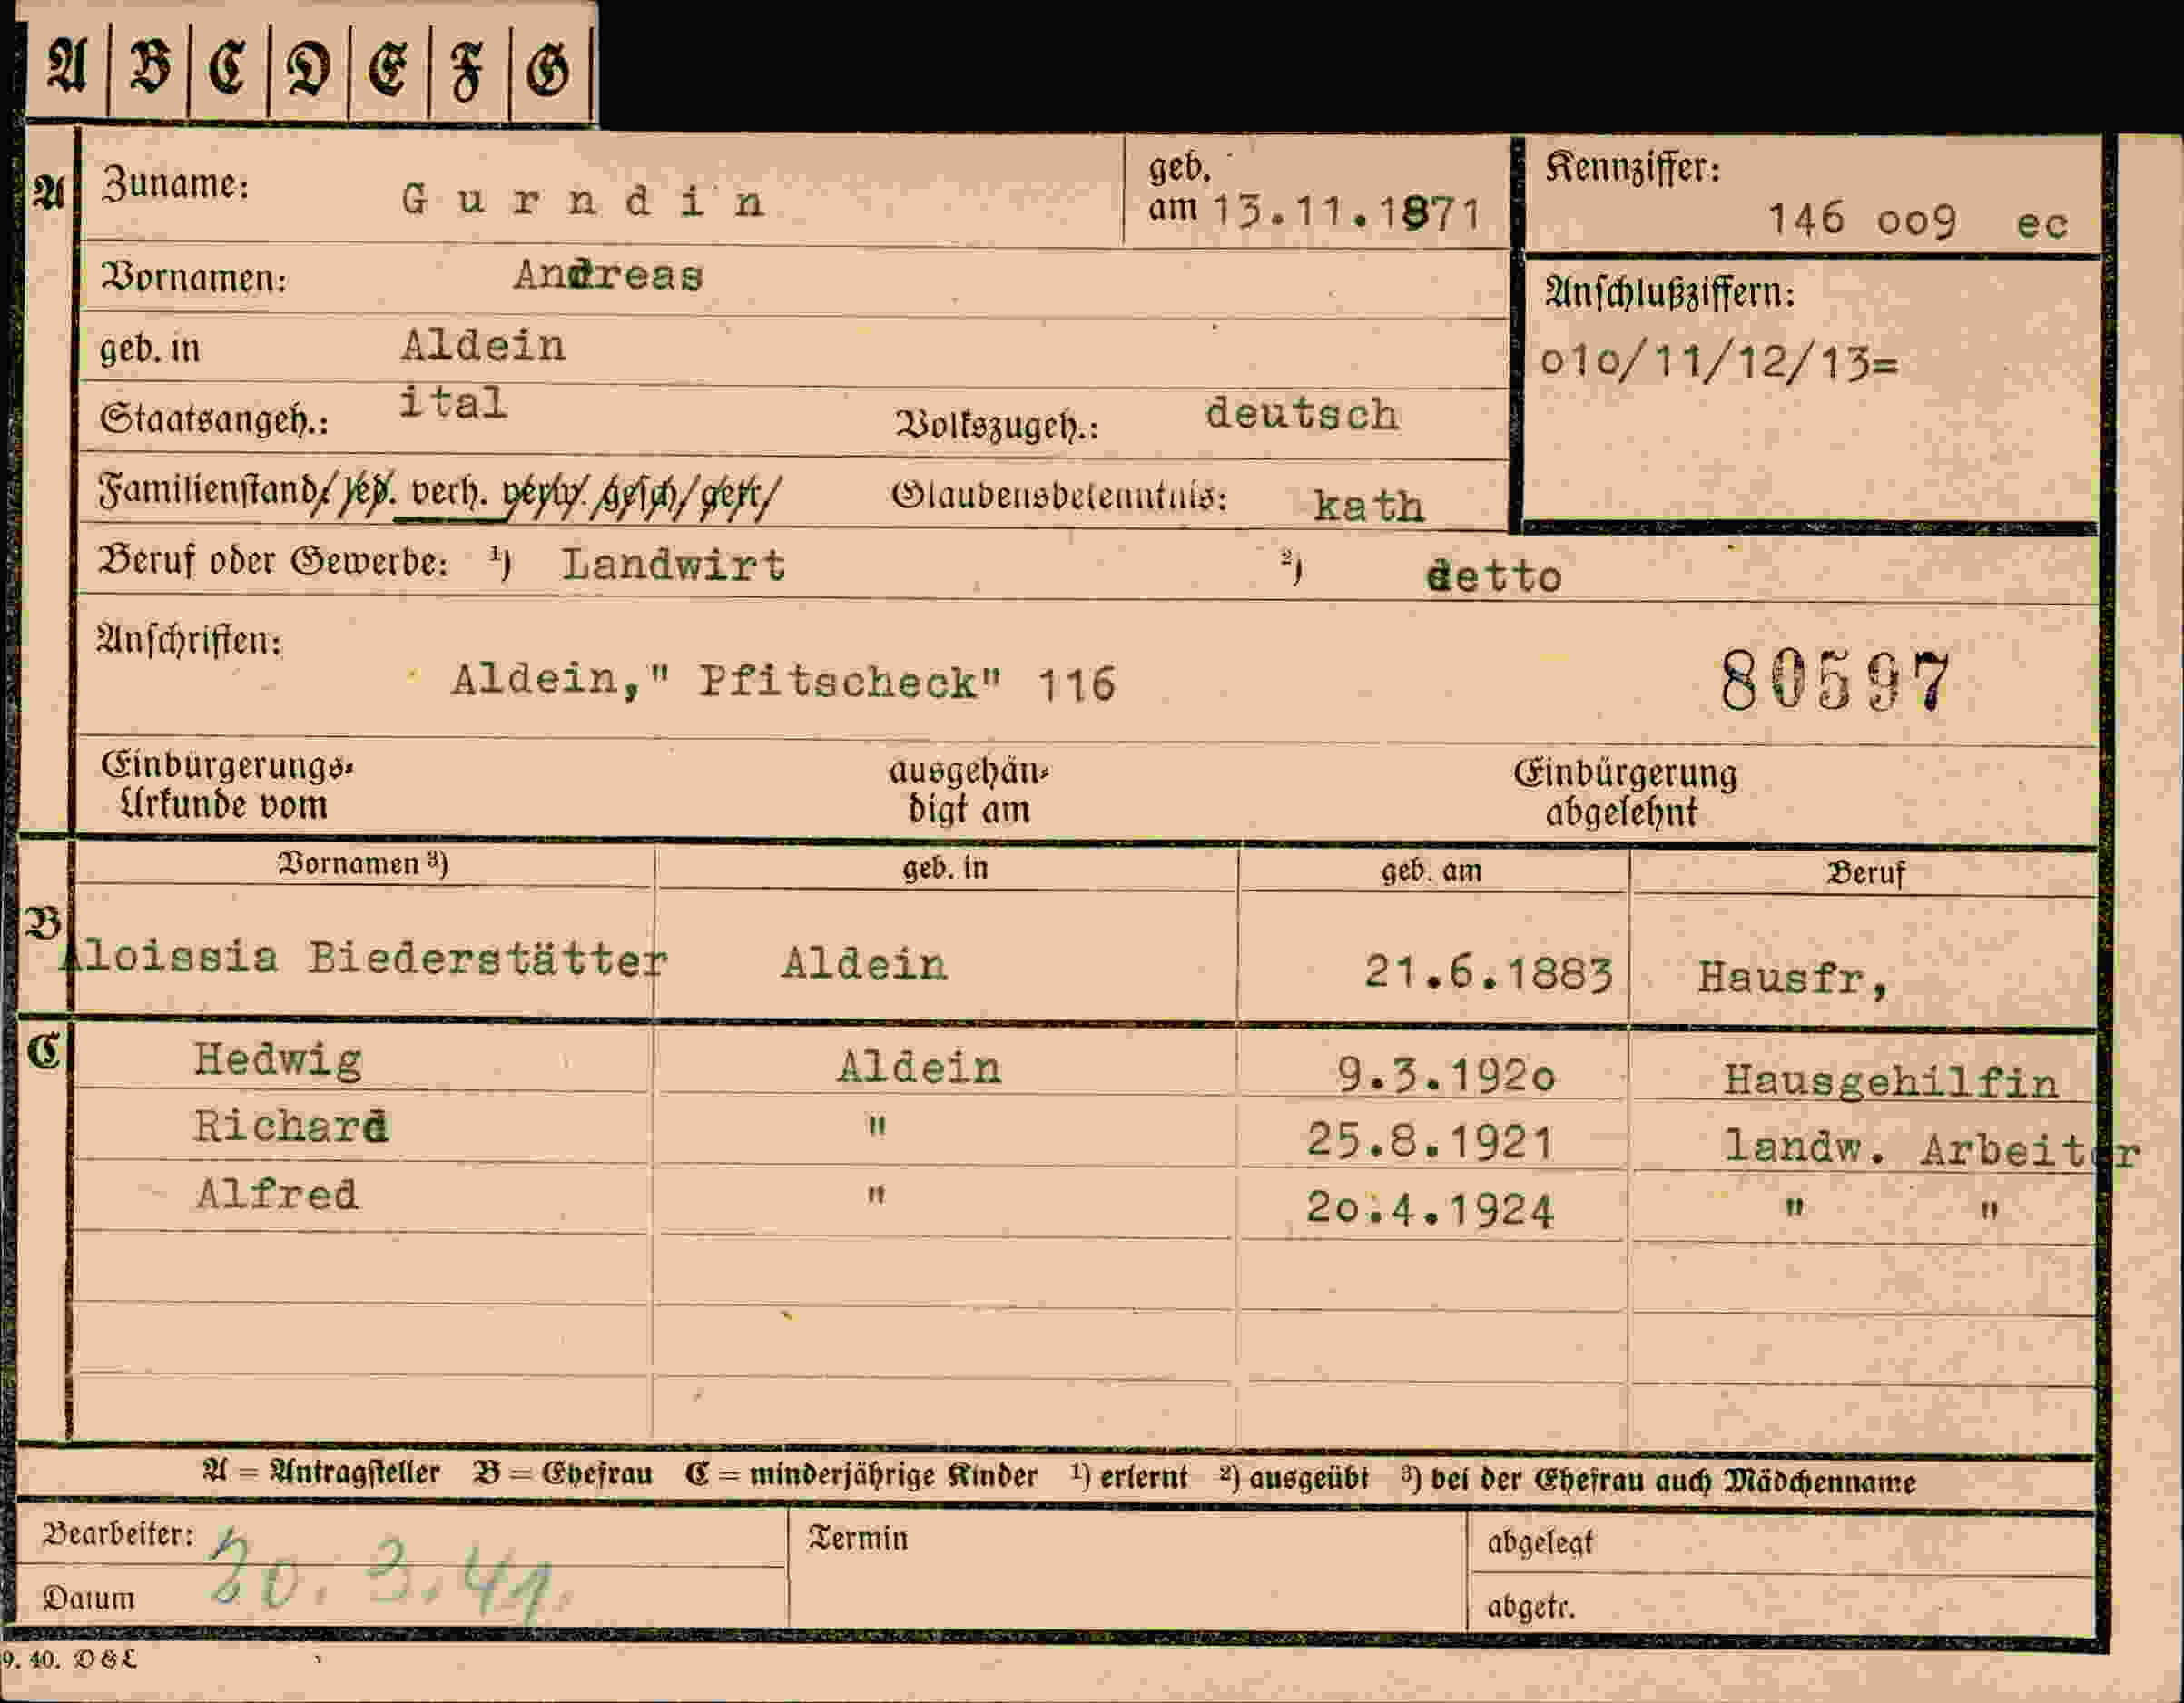 A B C D E F G
A Zuname: Gurndin geb. am 13.11.1871 Kennziffer: 146 oo9 ec
Vornamen: Andreas Anschlußziffern:
geb. in Aldein o1o/11/12/13=
Staatsangeh.: ital Volkszugeh.: deutsch
Familienstand/ led. verh. verw. gesch/ getr/ Glaubensbekenntnis: kath
Beruf oder Gewerbe: ¹) Landwirt ²) detto
Anschriften:
Aldein," Pfitscheck" 116 80597
Einbürgerungs= ausgehän= Einbürgerung
Urkunde vom digt am abgelehnt
Vornamen ³) geb. in geb. am Beruf
B
Aloissia Biederstätter Aldein 21.6.1883 Hausfr,
C Hedwig Aldein 9.3.192o Hausgehilfin
Richard " 25.8.1921 landw. Arbeiter
Alfred " 2o.4.1924 " "
A = Antragsteller B = Ehefrau C = minderjährige Kinder ¹) erlernt ²) ausgeübt ³) bei der Ehefrau auch Mädchenname
Bearbeiter: Termin abgelegt
Datum 20. 3. 41. abgetr.
9. 40. D&L